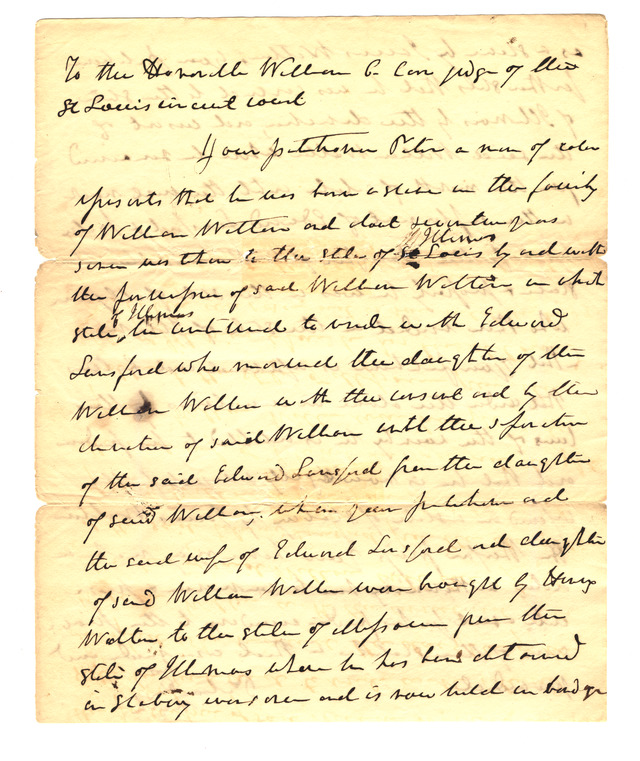 To the Honorable William C Carr judge of the
St Louis circuit court
Your petitioner Peter a man of color
represents that he was born a slave in the family
of William Walton and that seventeen years
of Illinois
since was taken to the State of St Louis by and with
the permission of said William Walton in which
of Illinois
State, he continued to reside with Edward
Lansford who married the daughter of the
William Walton with the consent and by the
direction of said William until the separation
of the said Edward Lansford from the daughter
of said William, when your petitioner and
the said wife of Edward Lansford and daughter
of said William Walton were brought by
Walton, to the State of Missouri from the
State of Illinois where he has been detained
in Slavery ever since and is now held in bondage